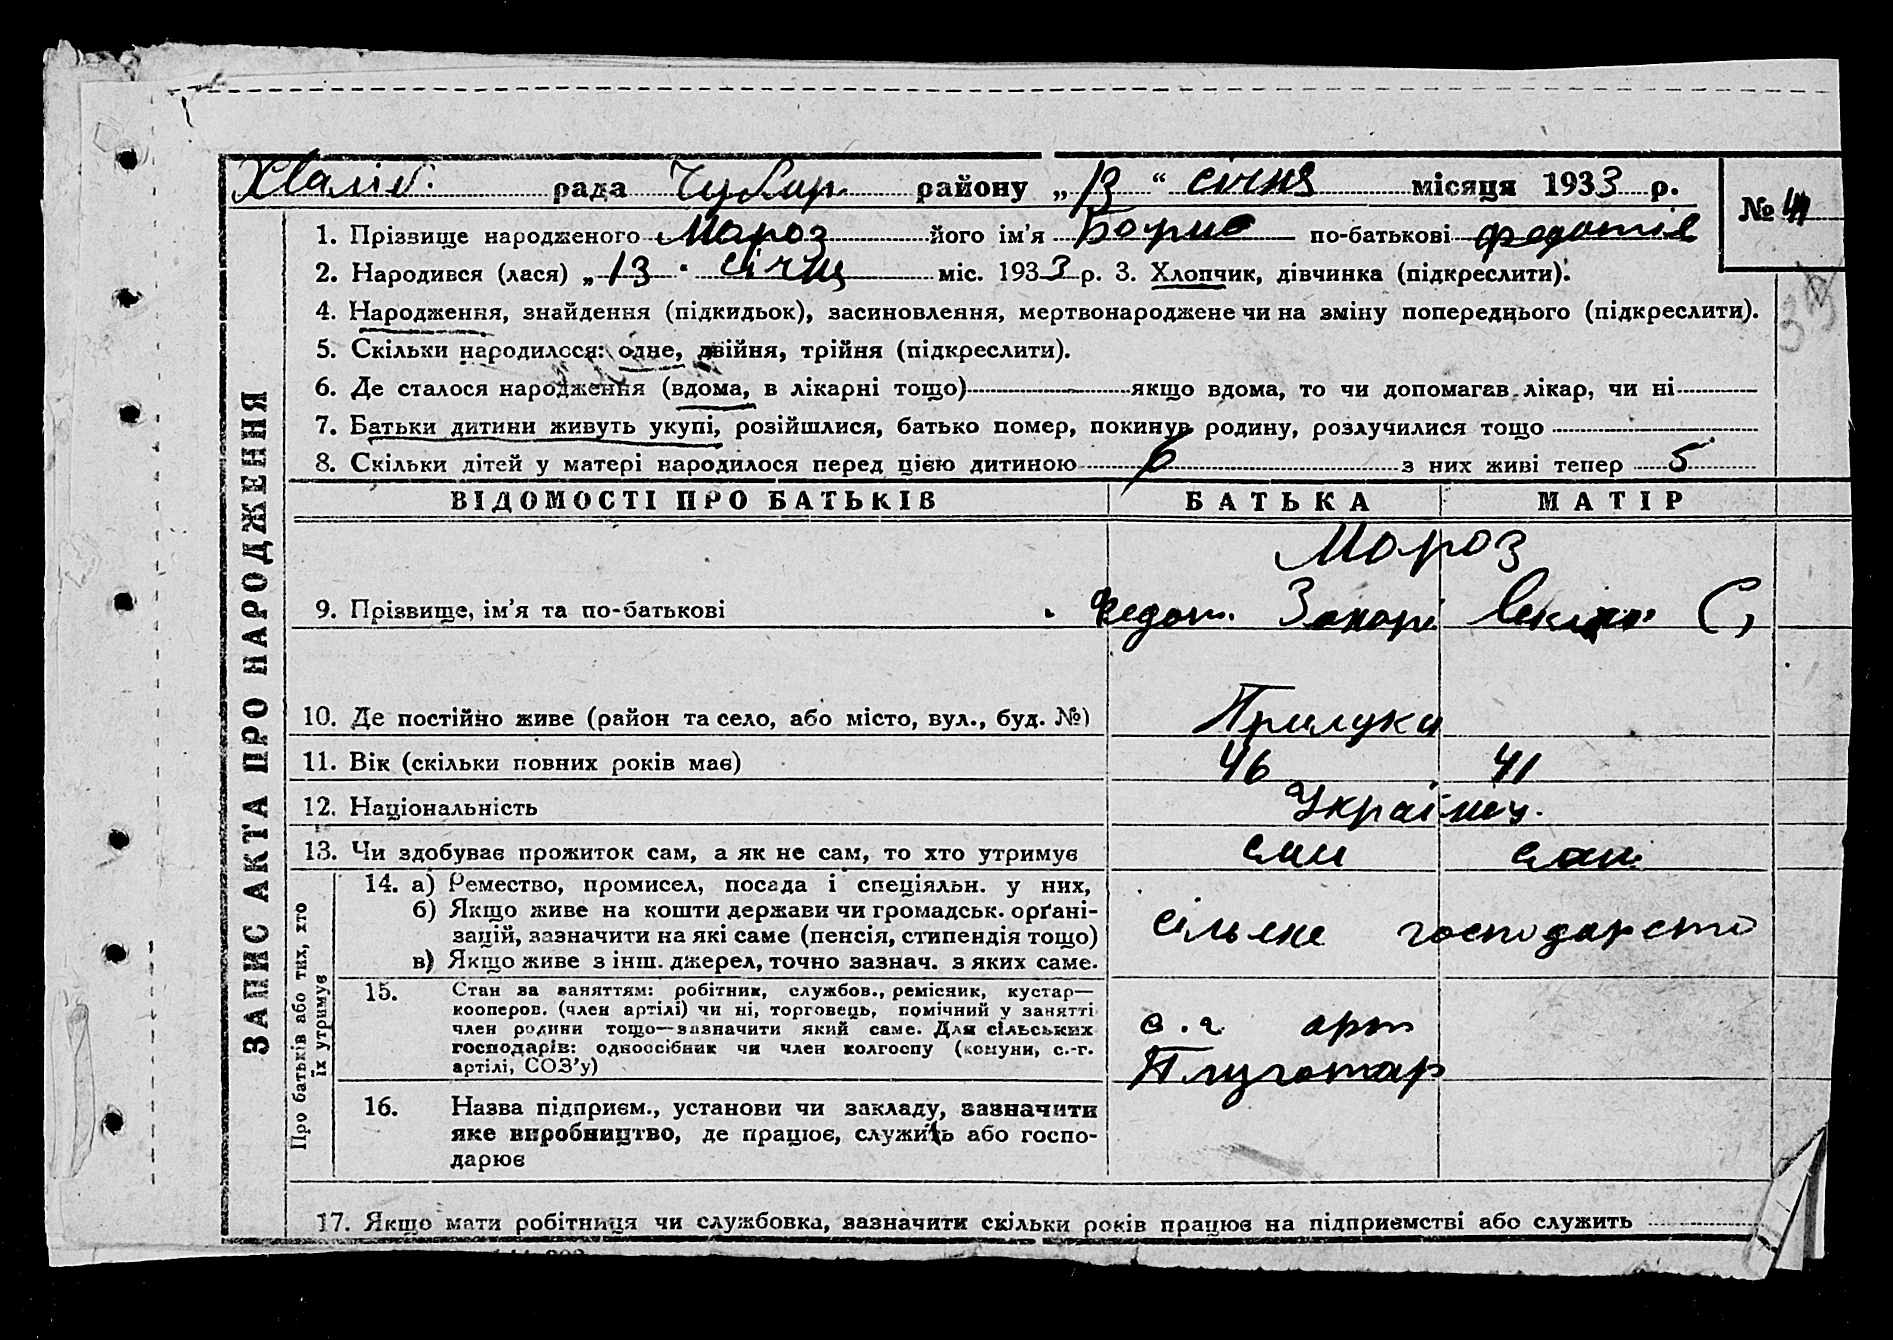 рада Чубар району „13“ січня місяця 1933 р.
№ 41
1. Прізвище народженого Мороз його ім'я Борис по-батькові Федотів
2. Народився (лася) „13 січня міс. 1933 р. 3. Хлопчик, дівчинка (підкреслити).
4. Народження, знайдення (підкидьок), засиновлення, мертвонароджене чи на зміну попереднього (підкреслити).
5. Скільки народилося: одне, двійня, трійня (підкреслити).
6. Де сталося народження (вдома, в лікарні тощо) якщо вдома, то чи допомагав лікар, чи ні
7. Батьки дитини живуть укупі, розійшлися, батько помер, покинув родину, розлучилися тощо
8. Скільки дітей у матері народилося перед цією дитиною 6 з них живі тепер 5
ЗАПИС АКТА ПРО НАРОДЖЕННЯ
ВІДОМОСТІ ПРО БАТЬКІВ БАТЬКА МАТІР
Мороз
9. Прізвище, ім'я та по-батькові Федот. Захарі С,
10. Де постійно живе (район та село, або місто, вул., буд. №) Прилуки
11. Вік (скільки повних років має) 46 41
12. Національність Українц.
13. Чи здобуває прожиток сам, а як не сам, то хто утримує сам сам
Про батьків або тих, хто їх утримує
14. а) Ремество, промисел, посада і спеціяльн. у них,
б) Якщо живе на кошти держави чи громадськ. орґані-
зацій, зазначити на які саме (пенсія, стипендія тощо) сільске господарство
в) Якщо живе з інш. джерел, точно зазнач. з яких саме.
15. Стан за заняттям: робітник, службов., ремісник, кустар—
кооперов. (член артілі) чи ні, торговець, помічний у занятті
член родини тощо—зазначити який саме. Для сільських с. г арт
господарів: одноосібник чи член колгоспу (комуни, с.-г.
артілі, СОЗ'у) Плугатар
16. Назва підприєм., установи чи закладу, зазначити
яке виробництво, де працює, служить або госпо-
дарює
17. Якщо мати робітниця чи службовка, зазначити скільки років працює на підприємстві або служить